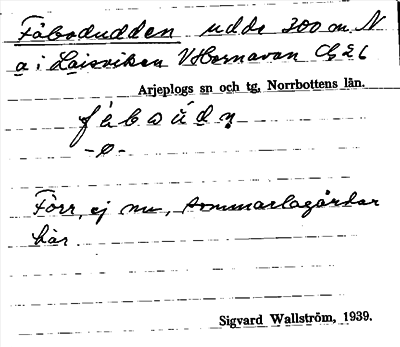 Fäbodudden udde 300 m N
a i Laisviken V Hornavan
Arjeplogs sn och tg, Norrbottens län.
-o-
Förr, ej nu, sommarlagårdar
här.
Sigvard Wallström, 1939.